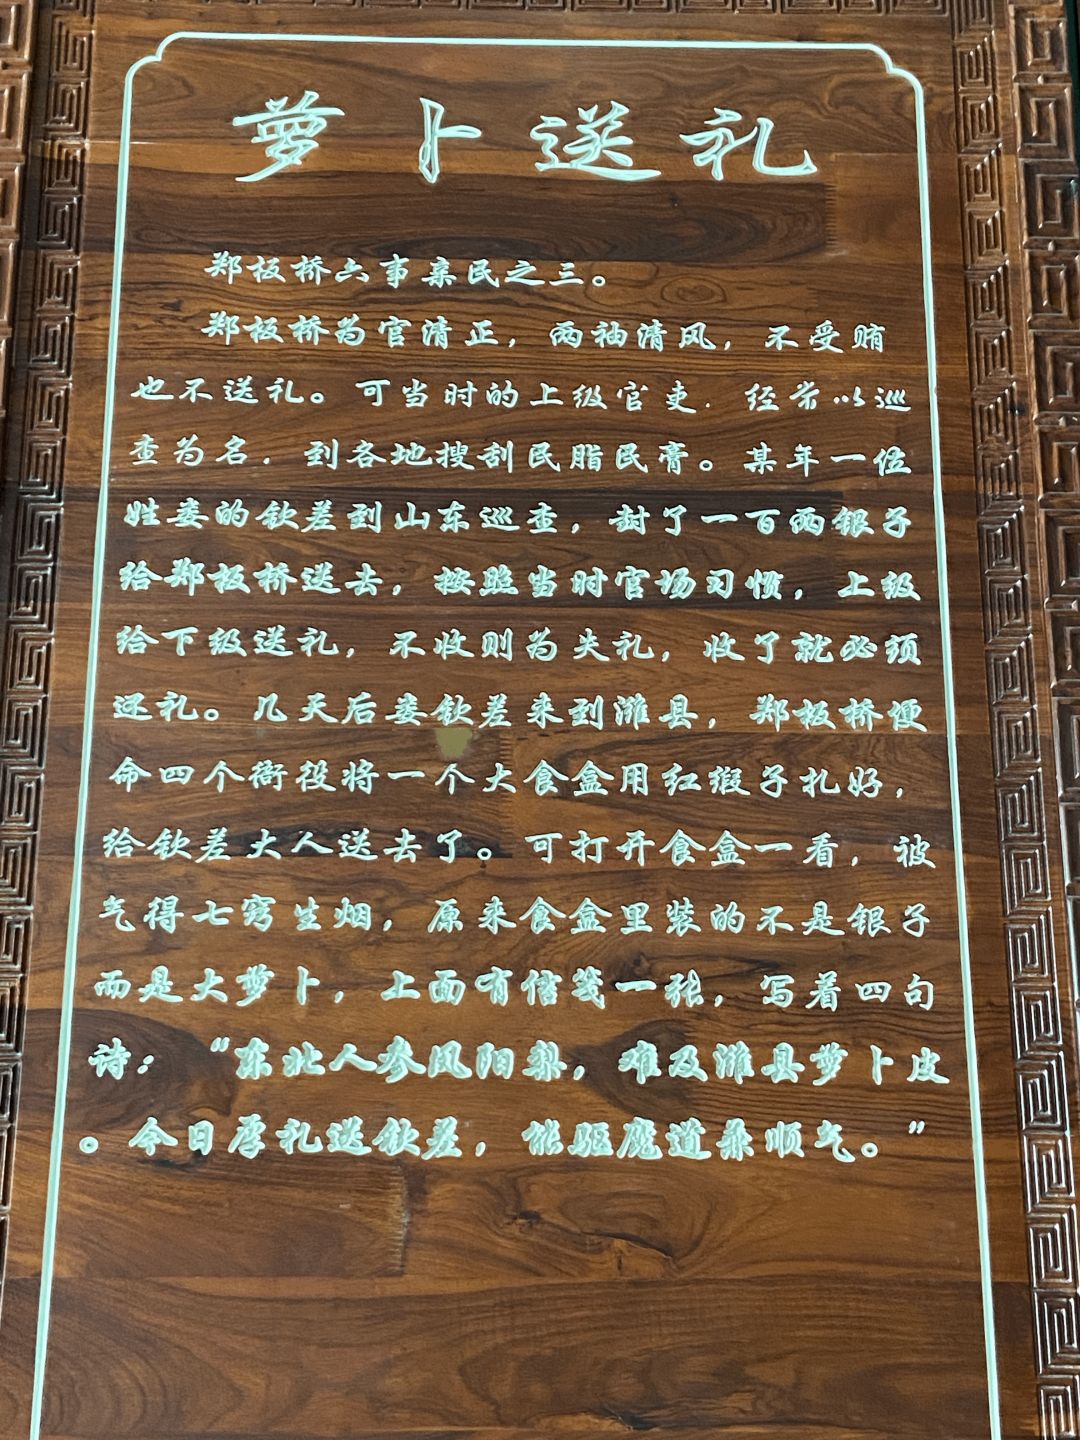 萝卜送礼
郑板桥六事亲民之三。
郑板桥为官清正，两袖清风，不受贿
也不送礼。可当时的上级官吏，经常以巡
查为名，到各地搜刮民脂民膏。某年一位
姓娄的钦差到山东巡查，封了一百两银子
给郑板桥送去，按照当时官场习惯，上级
给下级送礼，不收则为失礼，收了就必须
还礼。几天后娄钦差来到潍县，郑板桥便
命四个衙役将一个大食盒用红缎子扎好，
给钦差大人送去了。可打开食盒一看，被
气得七窍生烟，原来食盒里装的不是银子
而是大萝卜，上面有信笺一张，写着四句
诗：“东北人参凤阳梨，难及潍县萝卜皮
。今日厚礼送钦差，能驱魔道兼顺气。”